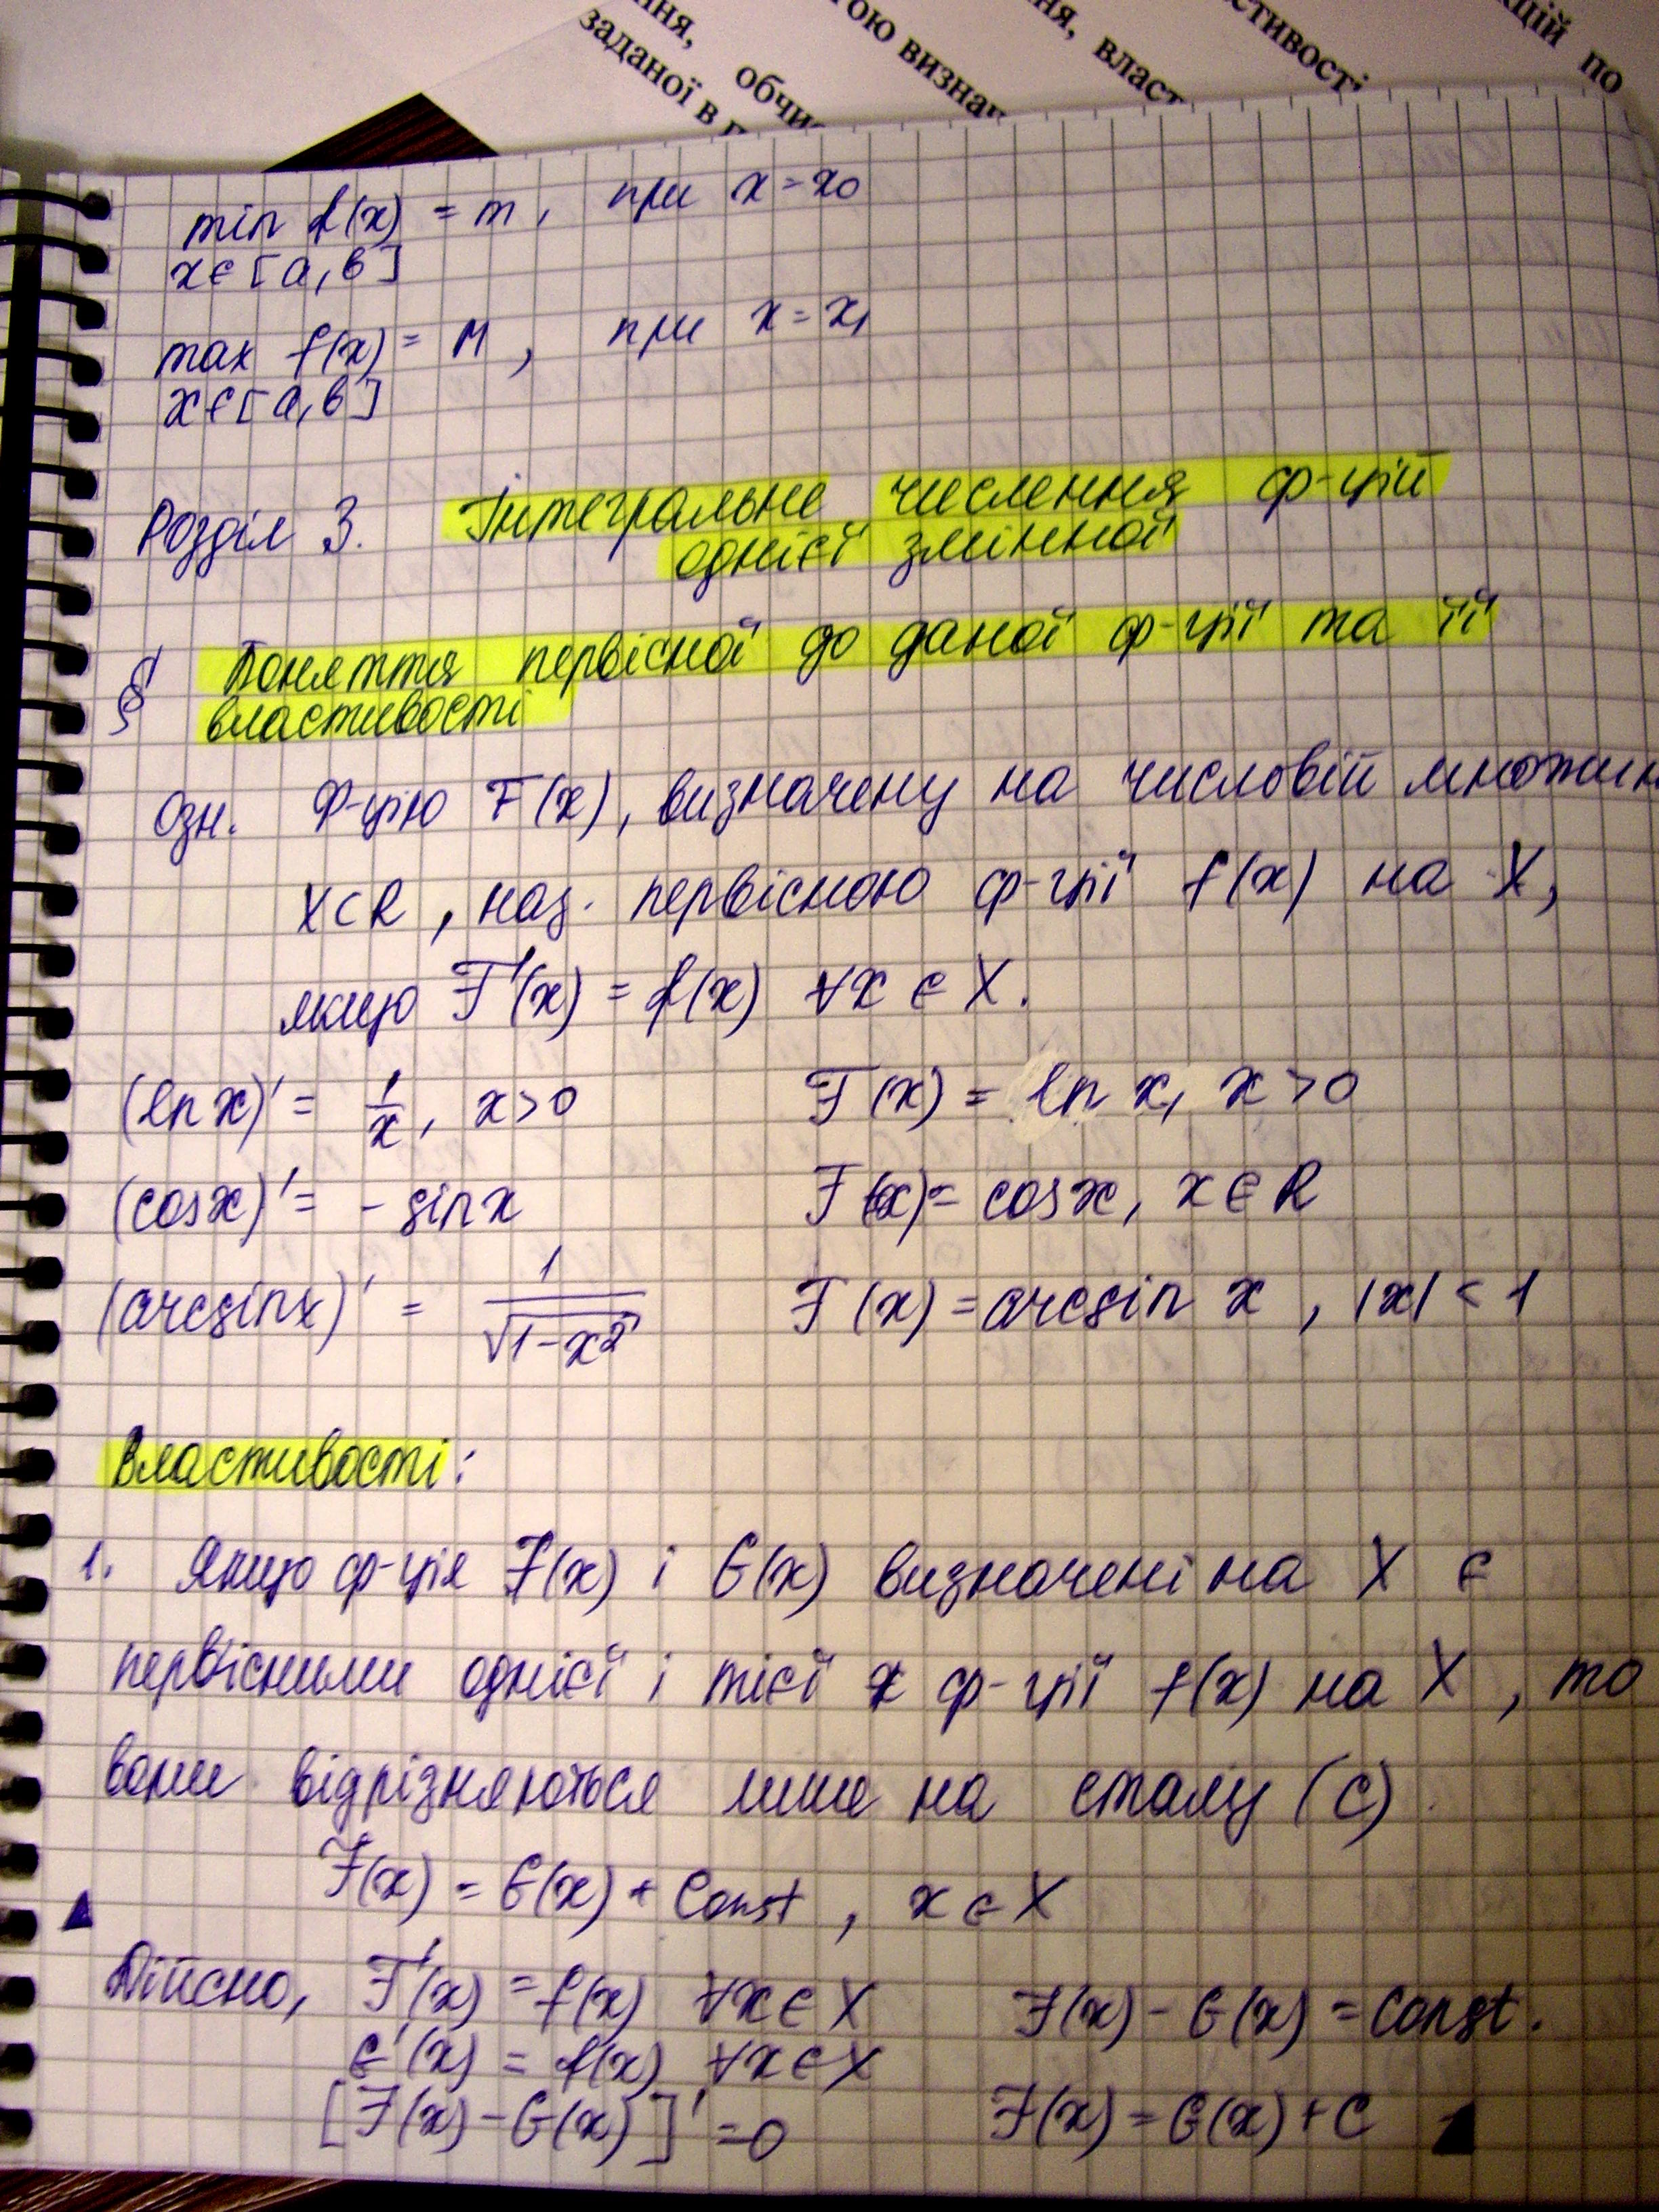 ння,
обчи
заданої в п
тою визнач
ня, власт
стивості
цій по
min f(x) = m, при x = x₀
x∈[a,b]
max f(x) = M, при x = x₁
x∈[a,b]
Розділ 3. Інтегральне числення ф-цій
однієї змінної
§ Поняття первісної до даної ф-ції та її
властивості
Озн. Ф-цію F(x), визначену на числовій множин
X⊂R, наз. первісною ф-ції f(x) на X,
якщо F'(x) = f(x) ∀x ∈ X.
(ln x)' = 1/x, x>0 F(x) = ln x, x>0
(cosx)' = - sin x F(x) = cosx, x∈R
(arcsinx)' = 1/√(1-x²) F(x) = arcsin x, |x| < 1
Властивості:
1. Якщо ф-ція F(x) і G(x) визначені на X є
первісними однієї і тієї ж ф-ції f(x) на X, то
вони відрізняються лише на сталу (C).
F(x) = G(x) + Const, x∈X
▲
Дійсно, F'(x) = f(x) ∀x∈X F(x) - G(x) = Const.
G'(x) = f(x) ∀x∈X
[F(x) - G(x)]' = 0 F(x) = G(x) + C ▲